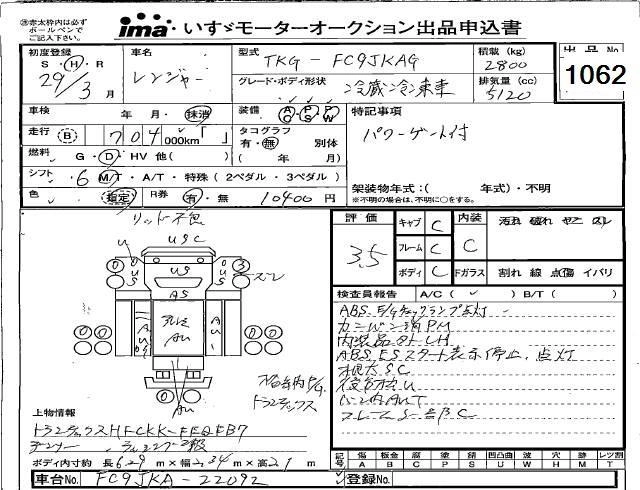 ㊟赤太枠内は必ず
ボールペンで
ご記入下さい。
ima・いすゞモーターオークション出品申込書
初度登録 S・H・R 29/3 月
車名 レンジャー
型式 TKG-FC9JKAG
積載 (kg) 2800
出品No 1062
グレード・ボディ形状 冷蔵冷凍車
排気量 (cc) 5120
車検 年・月・抹消
装備 AC PS PW
特記事項
パワーゲート付
走行 B 704 000km「 」
タコグラフ 有・無 別体 ( 年 月)
燃料 G・D・HV 他( )
シフト 6 M/T・A/T・特殊 (2ペダル・3ペダル)
架装物年式:( 年式)・不明
※不明の場合は、不明に○をする。
色 指定 R券 有・無 10400円
評価 3.5
キャブ C 内装 C 汚れ 破れ ヤニ スレ
フレーム C
ボディ C Fガラス 割れ 線 点傷 イバリ
検査員報告 A/C( ✓ ) B/T( )
ABS. E/Gチェックランプ点灯
内装品外LH
ABS ESスタート表示停止、点灯
根太SC
フレームS-音BC
U
USC
US
US
US
AS
アルミ
AU
AU
AU
AU
3
スレ
トラテックス
上物情報
トラテックスHFCKK-FEQFB7
ボディ内寸約 長6.29m×幅2.34m×高2.1m
記号 傷 A 板金 B 腐 C 塗 P 錆 S 凹凸曲 U 波 W 穴 H 跡 M レツ割 T
車台No. FC9JKA-22092
登録No.